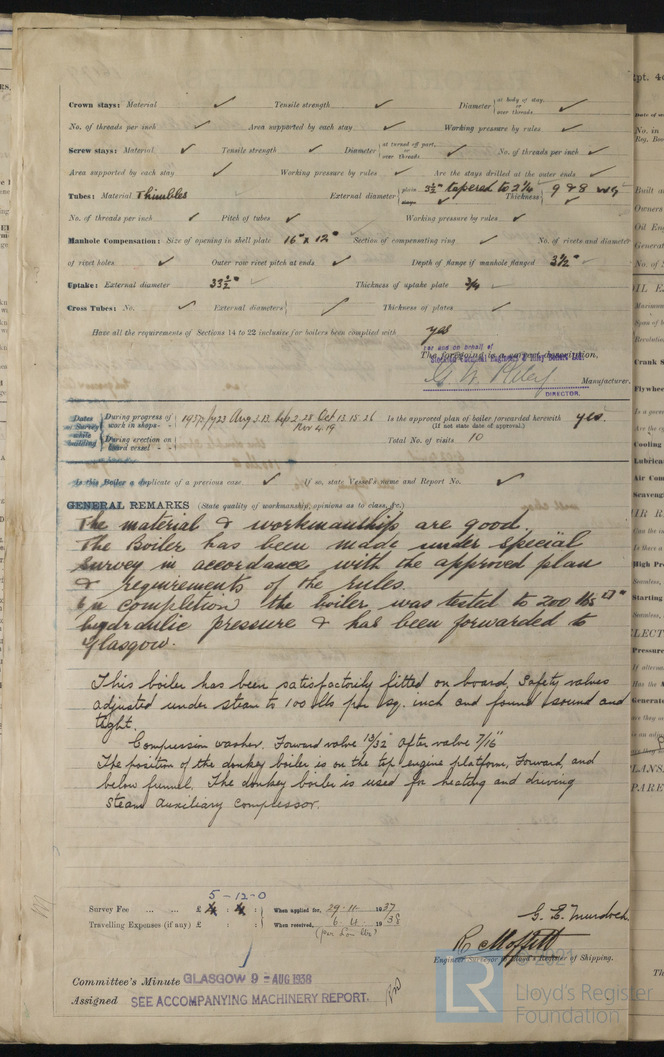 Crown stays: Material ✓ Tensile strength ✓ Diameter {at body of stay, or over threads. ✓
No. of threads per inch ✓ Area supported by each stay ✓ Working pressure by rules ✓
Screw stays: Material ✓ Tensile strength ✓ Diameter {at turned off part, or over threads. ✓ No. of threads per inch ✓
Area supported by each stay ✓ Working pressure by rules ✓ Are the stays drilled at the outer ends ✓
Tubes: Material Thimbles External diameter {plain 3½" tapered to 2¼ Thickness {9 & 8 WG
No. of threads per inch ✓ Pitch of tubes ✓ Working pressure by rules ✓
Manhole Compensation: Size of opening in shell plate 16" x 12" Section of compensating ring ✓ No. of rivets and diameter
of rivet holes ✓ Outer row rivet pitch at ends ✓ Depth of flange if manhole flanged 3½"
Uptake: External diameter 33½" Thickness of uptake plate ¾
Cross Tubes: No. ✓ External diameters { ✓ Thickness of plates ✓
Have all the requirements of Sections 14 to 22 inclusive for boilers been complied with yes
For and on behalf of
The foregoing is a correct description,
Manufacturer.
DIRECTOR.
Dates of Survey while building
During progress of work in shops - - 1937. Aug 3.13. Sep 2.28 Oct 13.15.26 Nov 4.19
Is the approved plan of boiler forwarded herewith yes.
(If not state date of approval.)
During erection on board vessel - - -
Total No. of visits 10
Is this Boiler a duplicate of a previous case ✓ If so, state Vessel's name and Report No. ✓
GENERAL REMARKS (State quality of workmanship, opinions as to class, &c.)
The material & workmanship are good.
The Boiler has been made under special
survey in accordance with the approved plan
& requirements of the rules.
On completion the boiler was tested to 200 lbs □"
hydraulic pressure & has been forwarded to
Glasgow.
This boiler has been satisfactorily fitted on board, Safety valves
adjusted under steam to 100 lbs per sq. inch and found sound and
tight.
Compression washer. Forward valve 19/32" after valve 7/16"
The position of the donkey boiler is on the top engine platform, Forward, and
below funnel. The donkey boiler is used for heating and driving
steam auxiliary compressor.
5 - 12 - 0
Survey Fee ... ... £ : : When applied for, 29-11- 1937
Travelling Expenses (if any) £ : : When received, 6.4. 1938
G. E. Murdoch
R Moffitt
Engineer Surveyor to Lloyd's Register of Shipping.
Committee's Minute GLASGOW 9 - AUG 1938
Assigned SEE ACCOMPANYING MACHINERY REPORT.
© 2021
Lloyd's Register
Foundation
LR